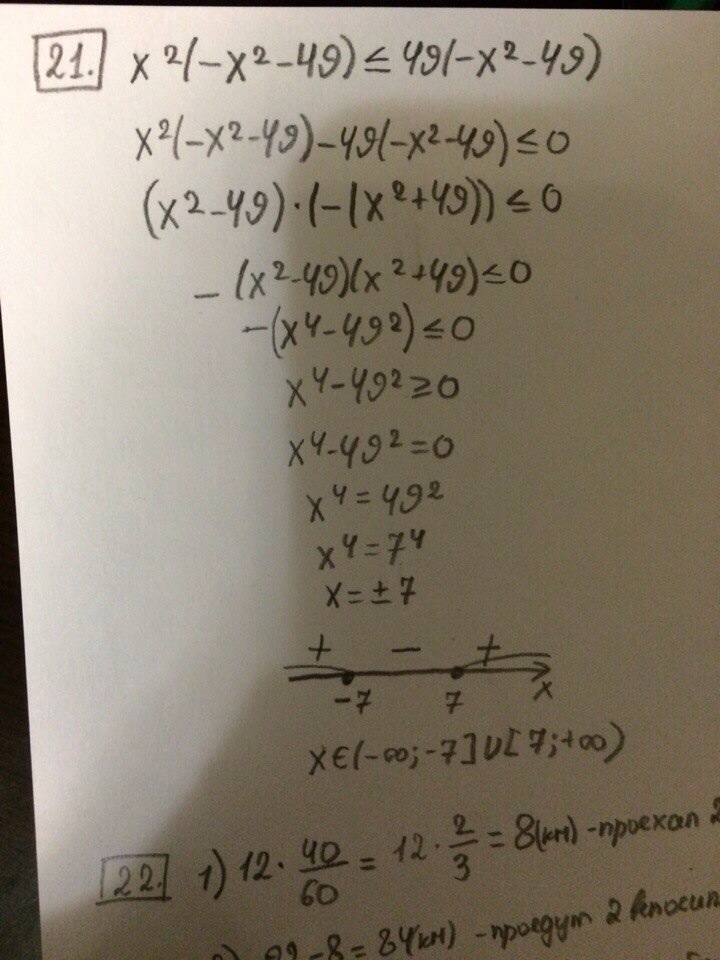 21. x²(-x²-49) ≤ 49(-x²-49)
x²(-x²-49)-49(-x²-49) ≤ 0
(x²-49)·(-(x²+49)) ≤ 0
-(x²-49)(x²+49) ≤ 0
-(x⁴-49²) ≤ 0
x⁴-49² ≥ 0
x⁴-49² = 0
x⁴ = 49²
x⁴ = 7⁴
x = ±7
+ - +
-7 7 x
x∈(-∞;-7]∪[7;+∞)
22. 1) 12·40/60 = 12·2/3 = 8(км) - проехал 2
-8 = 84(км) - проедут 2 велосип